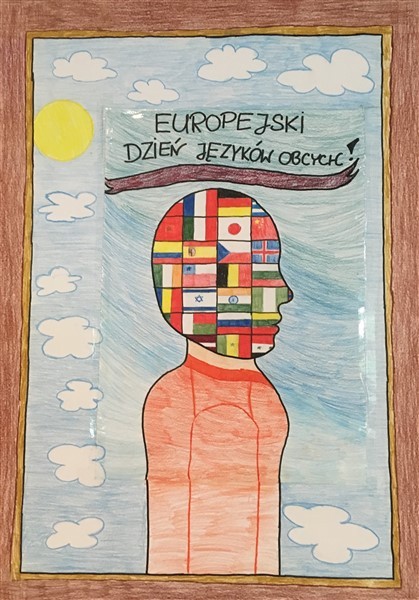 EUROPEJSKI
DZIEŃ JĘZYKÓW OBCYCH!